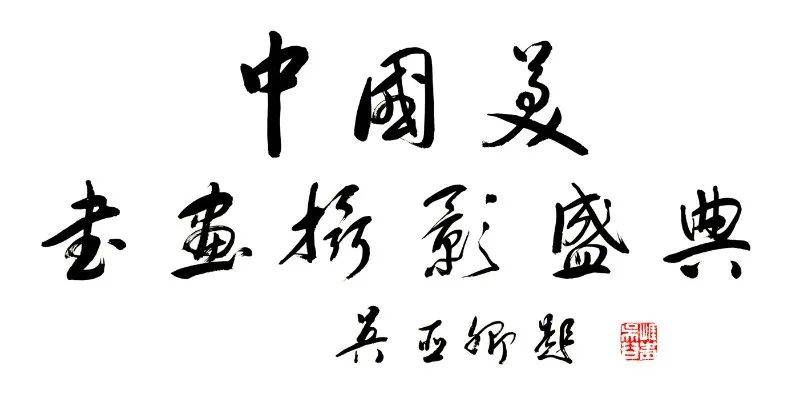 中國美
書畫攝影盛典
吴亚卿题